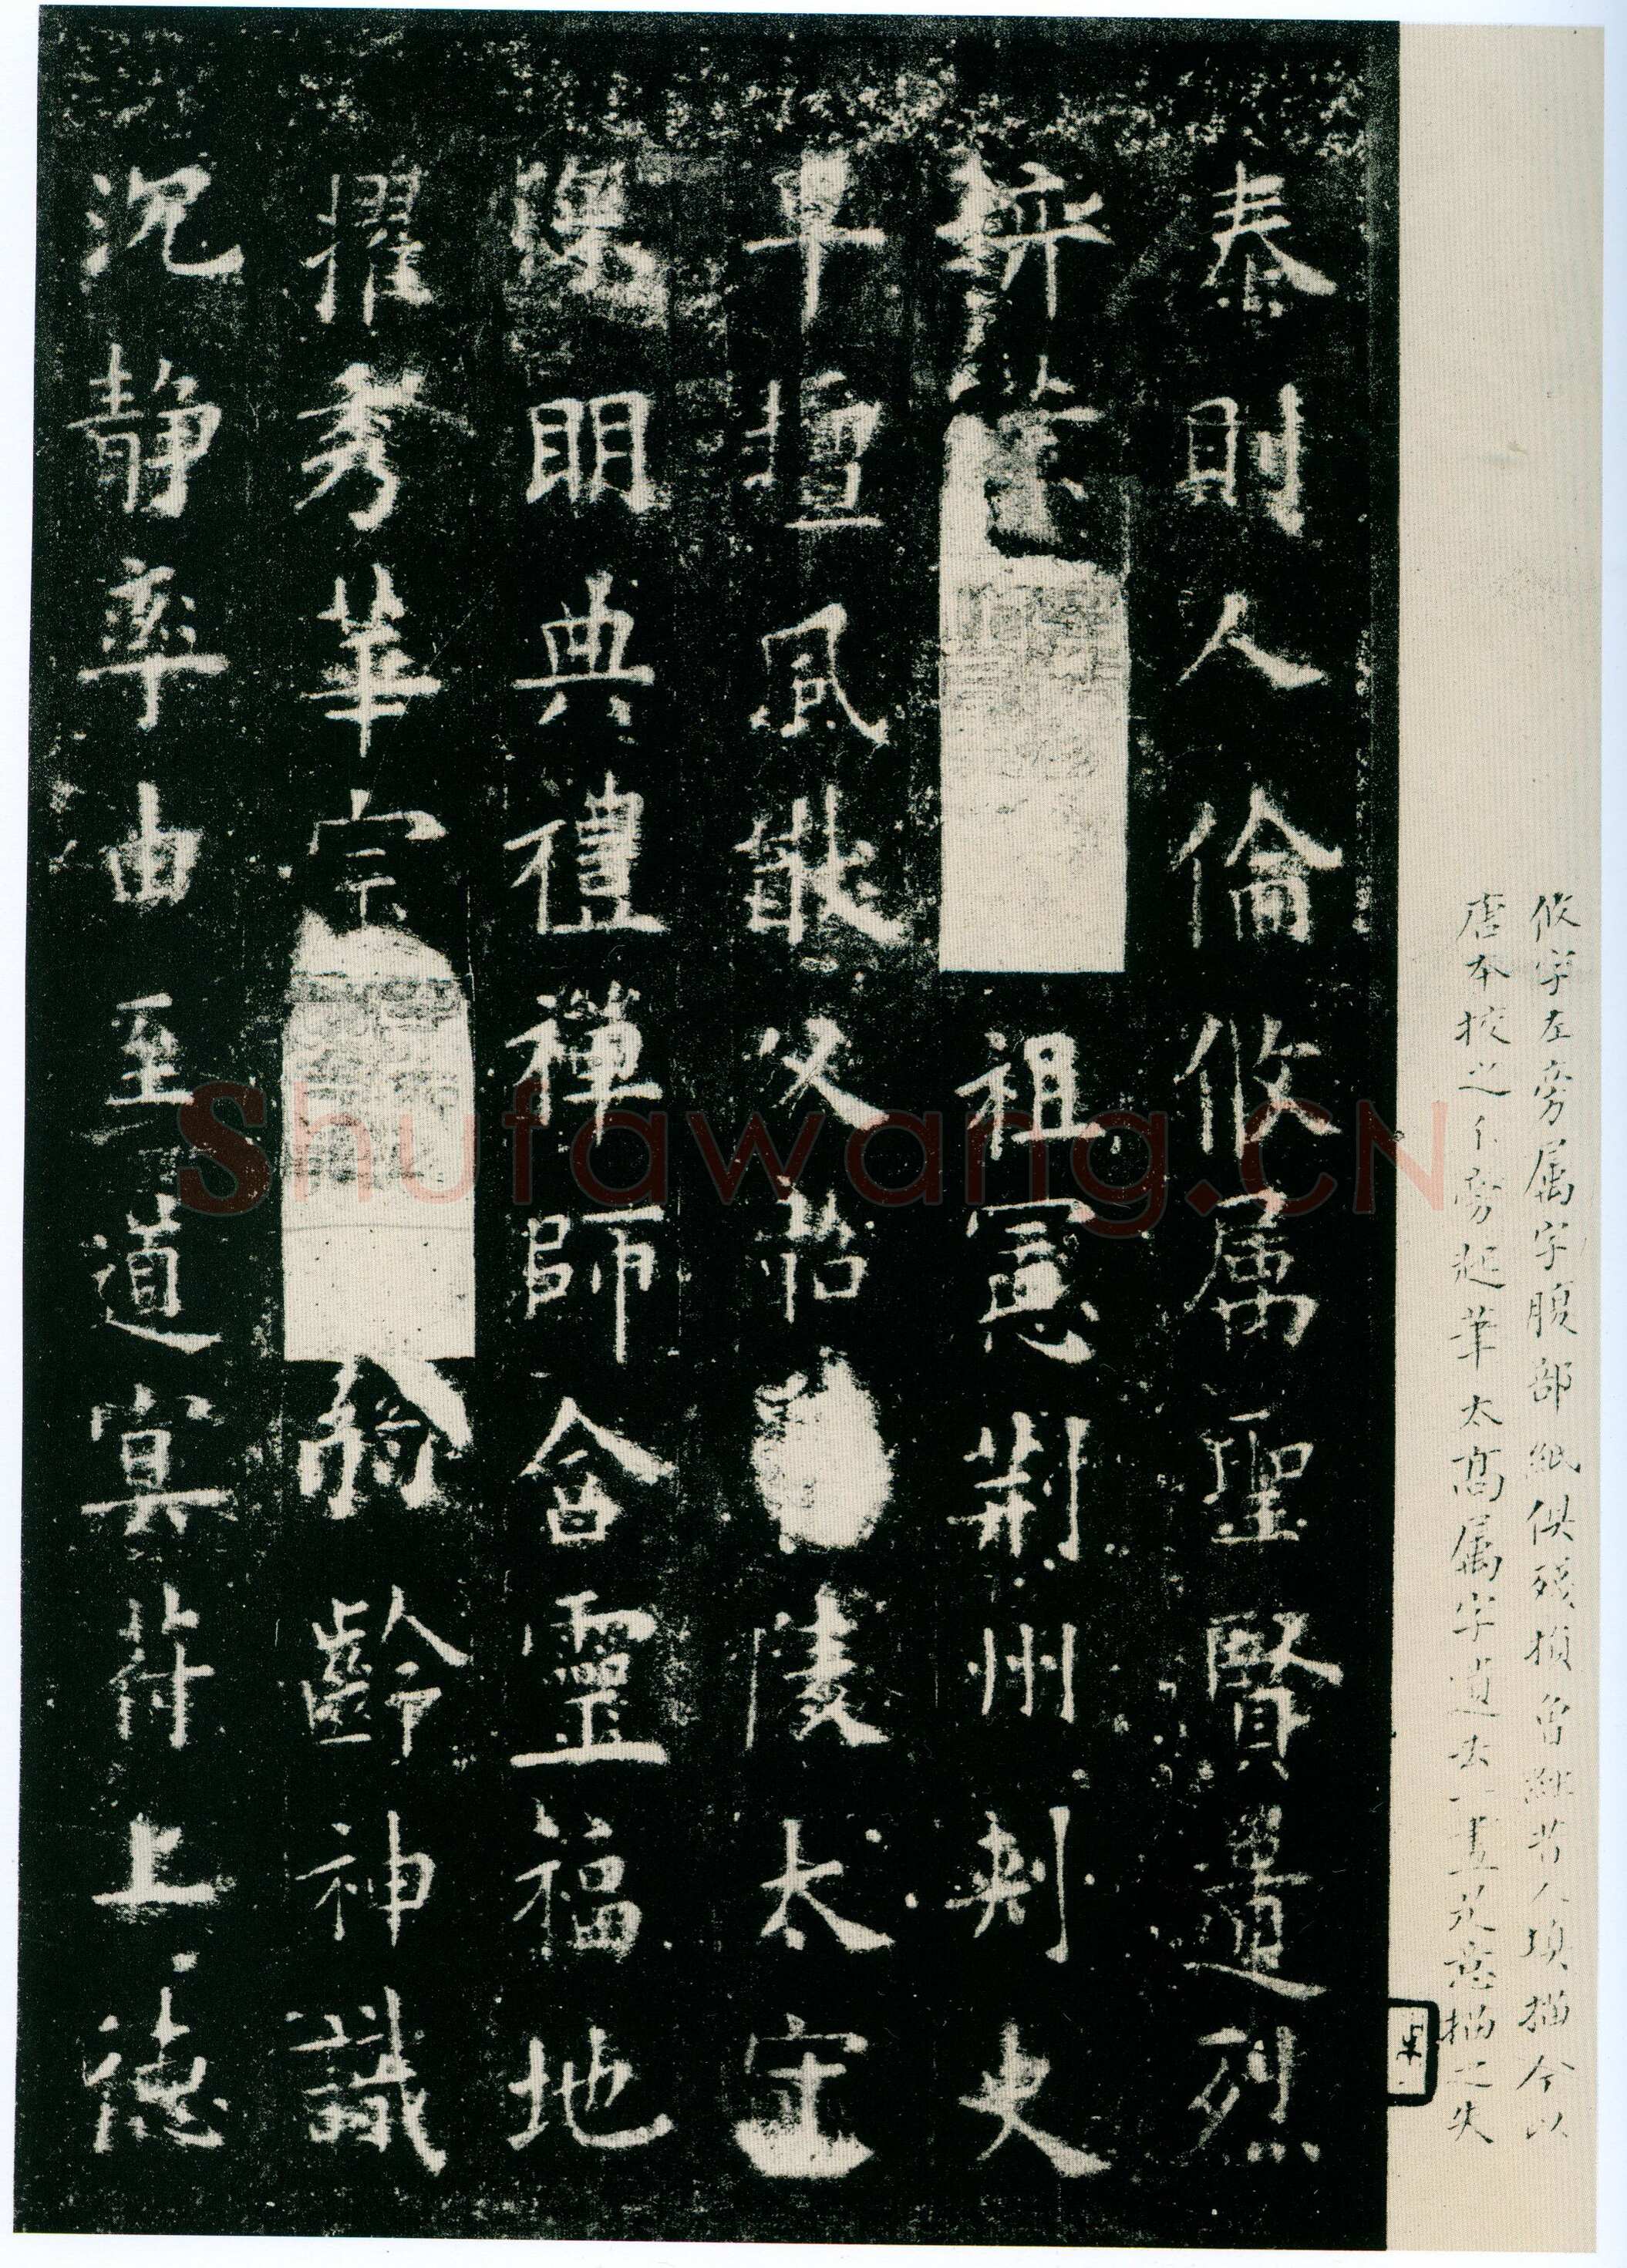 攸字左旁属字腹部紙俱殘損曾經昔人填描今以
唐本校之亻旁起筆太高属字去一畫描之失
泰則人倫攸属聖賢遺烈
弈葉祖憲荊州刺史
早擅風猷父韶陵太守
深明典禮禪師含靈福地
擢秀華宗弱齡神識
沉靜率由至道冥符上德
Shufawang.CN